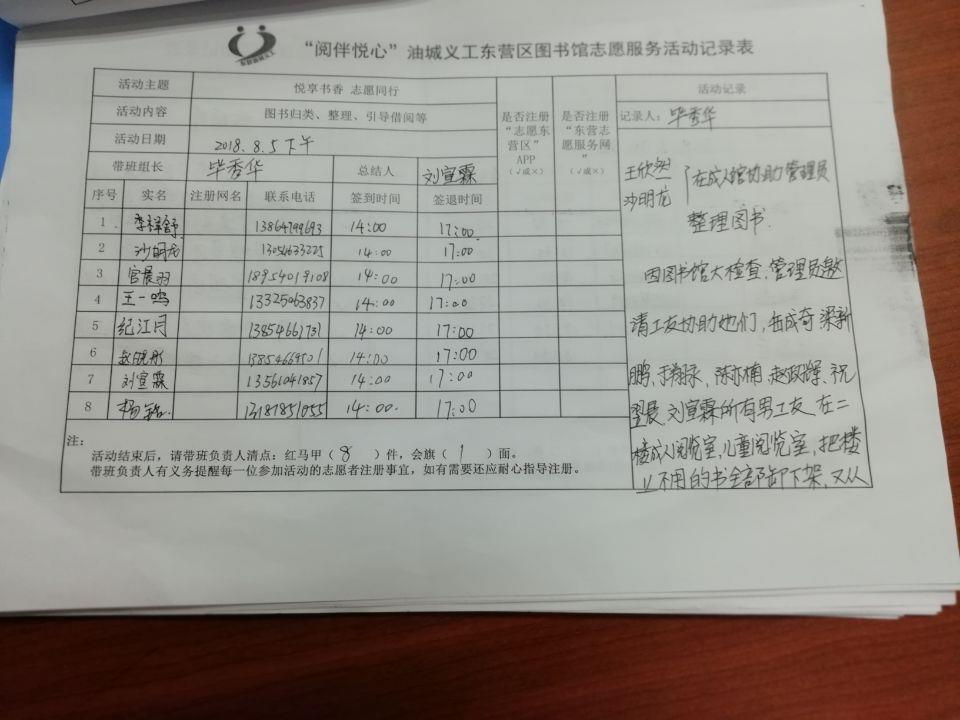 “阅伴悦心”油城义工东营区图书馆志愿服务活动记录表
活动主题 悦享书香 志愿同行
活动内容 图书归类、整理、引导借阅等
活动日期 2018.8.5下午
带班组长 毕秀华 总结人 刘宣霖
是否注册“志愿东营区”APP（√或×）
是否注册“东营志愿服务网”（√或×）
序号 实名 注册网名 联系电话 签到时间 签退时间
1 李祥舒 13864799693 14:00 17:00
2 沙明龙 13054633225 14:00 17:00
3 官晨羽 18954019108 14:00 17:00
4 王一鸣 13325063837 14:00 17:00
5 纪江月 13854661731 14:00 17:00
6 赵晓彤 13854669501 14:00 17:00
7 刘宣霖 13561041857 14:00 17:00
8 杨 13181851055 14:00 17:00
注：
活动结束后，请带班负责人清点：红马甲（8）件，会旗（1）面。
带班负责人有义务提醒每一位参加活动的志愿者注册事宜，如有需要还应耐心指导注册。
活动记录
记录人：毕秀华
王欣然
沙明龙 在成人馆协助管理员
整理图书
因图书馆大检查，管理员邀
请工友协助她们，岳成奇 梁新
鹏、于翔永、陈亦楠、赵政辉、祝
翌晨 刘宣霖所有男工友，在二
楼成人阅览室，儿童阅览室，把楼
上不用的书全部卸下架，又从